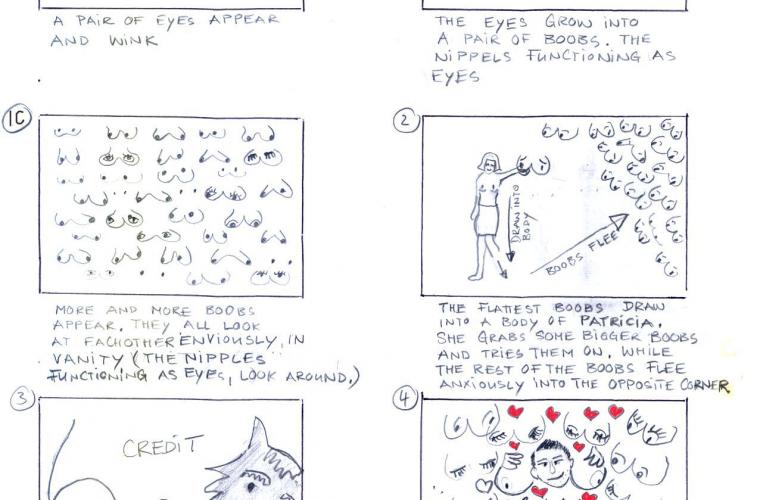 A PAIR OF EYES APPEAR
AND WINK
THE EYES GROW INTO
A PAIR OF BOOBS. THE
NIPPELS FUNCTIONING AS
EYES
1C
MORE AND MORE BOOBS
APPEAR. THEY ALL LOOK
AT EACHOTHER ENVIOUSLY, IN
VANITY (THE NIPPLES
FUNCTIONING AS EYES, LOOK AROUND.)
2
DRAW INTO
BODY
BOOBS FLEE
THE FLATTEST BOOBS DRAW
INTO A BODY OF PATRICIA.
SHE GRABS SOME BIGGER BOOBS
AND TRIES THEM ON, WHILE
THE REST OF THE BOOBS FLEE
ANXIOUSLY INTO THE OPPOSITE CORNER
3
CREDIT
4